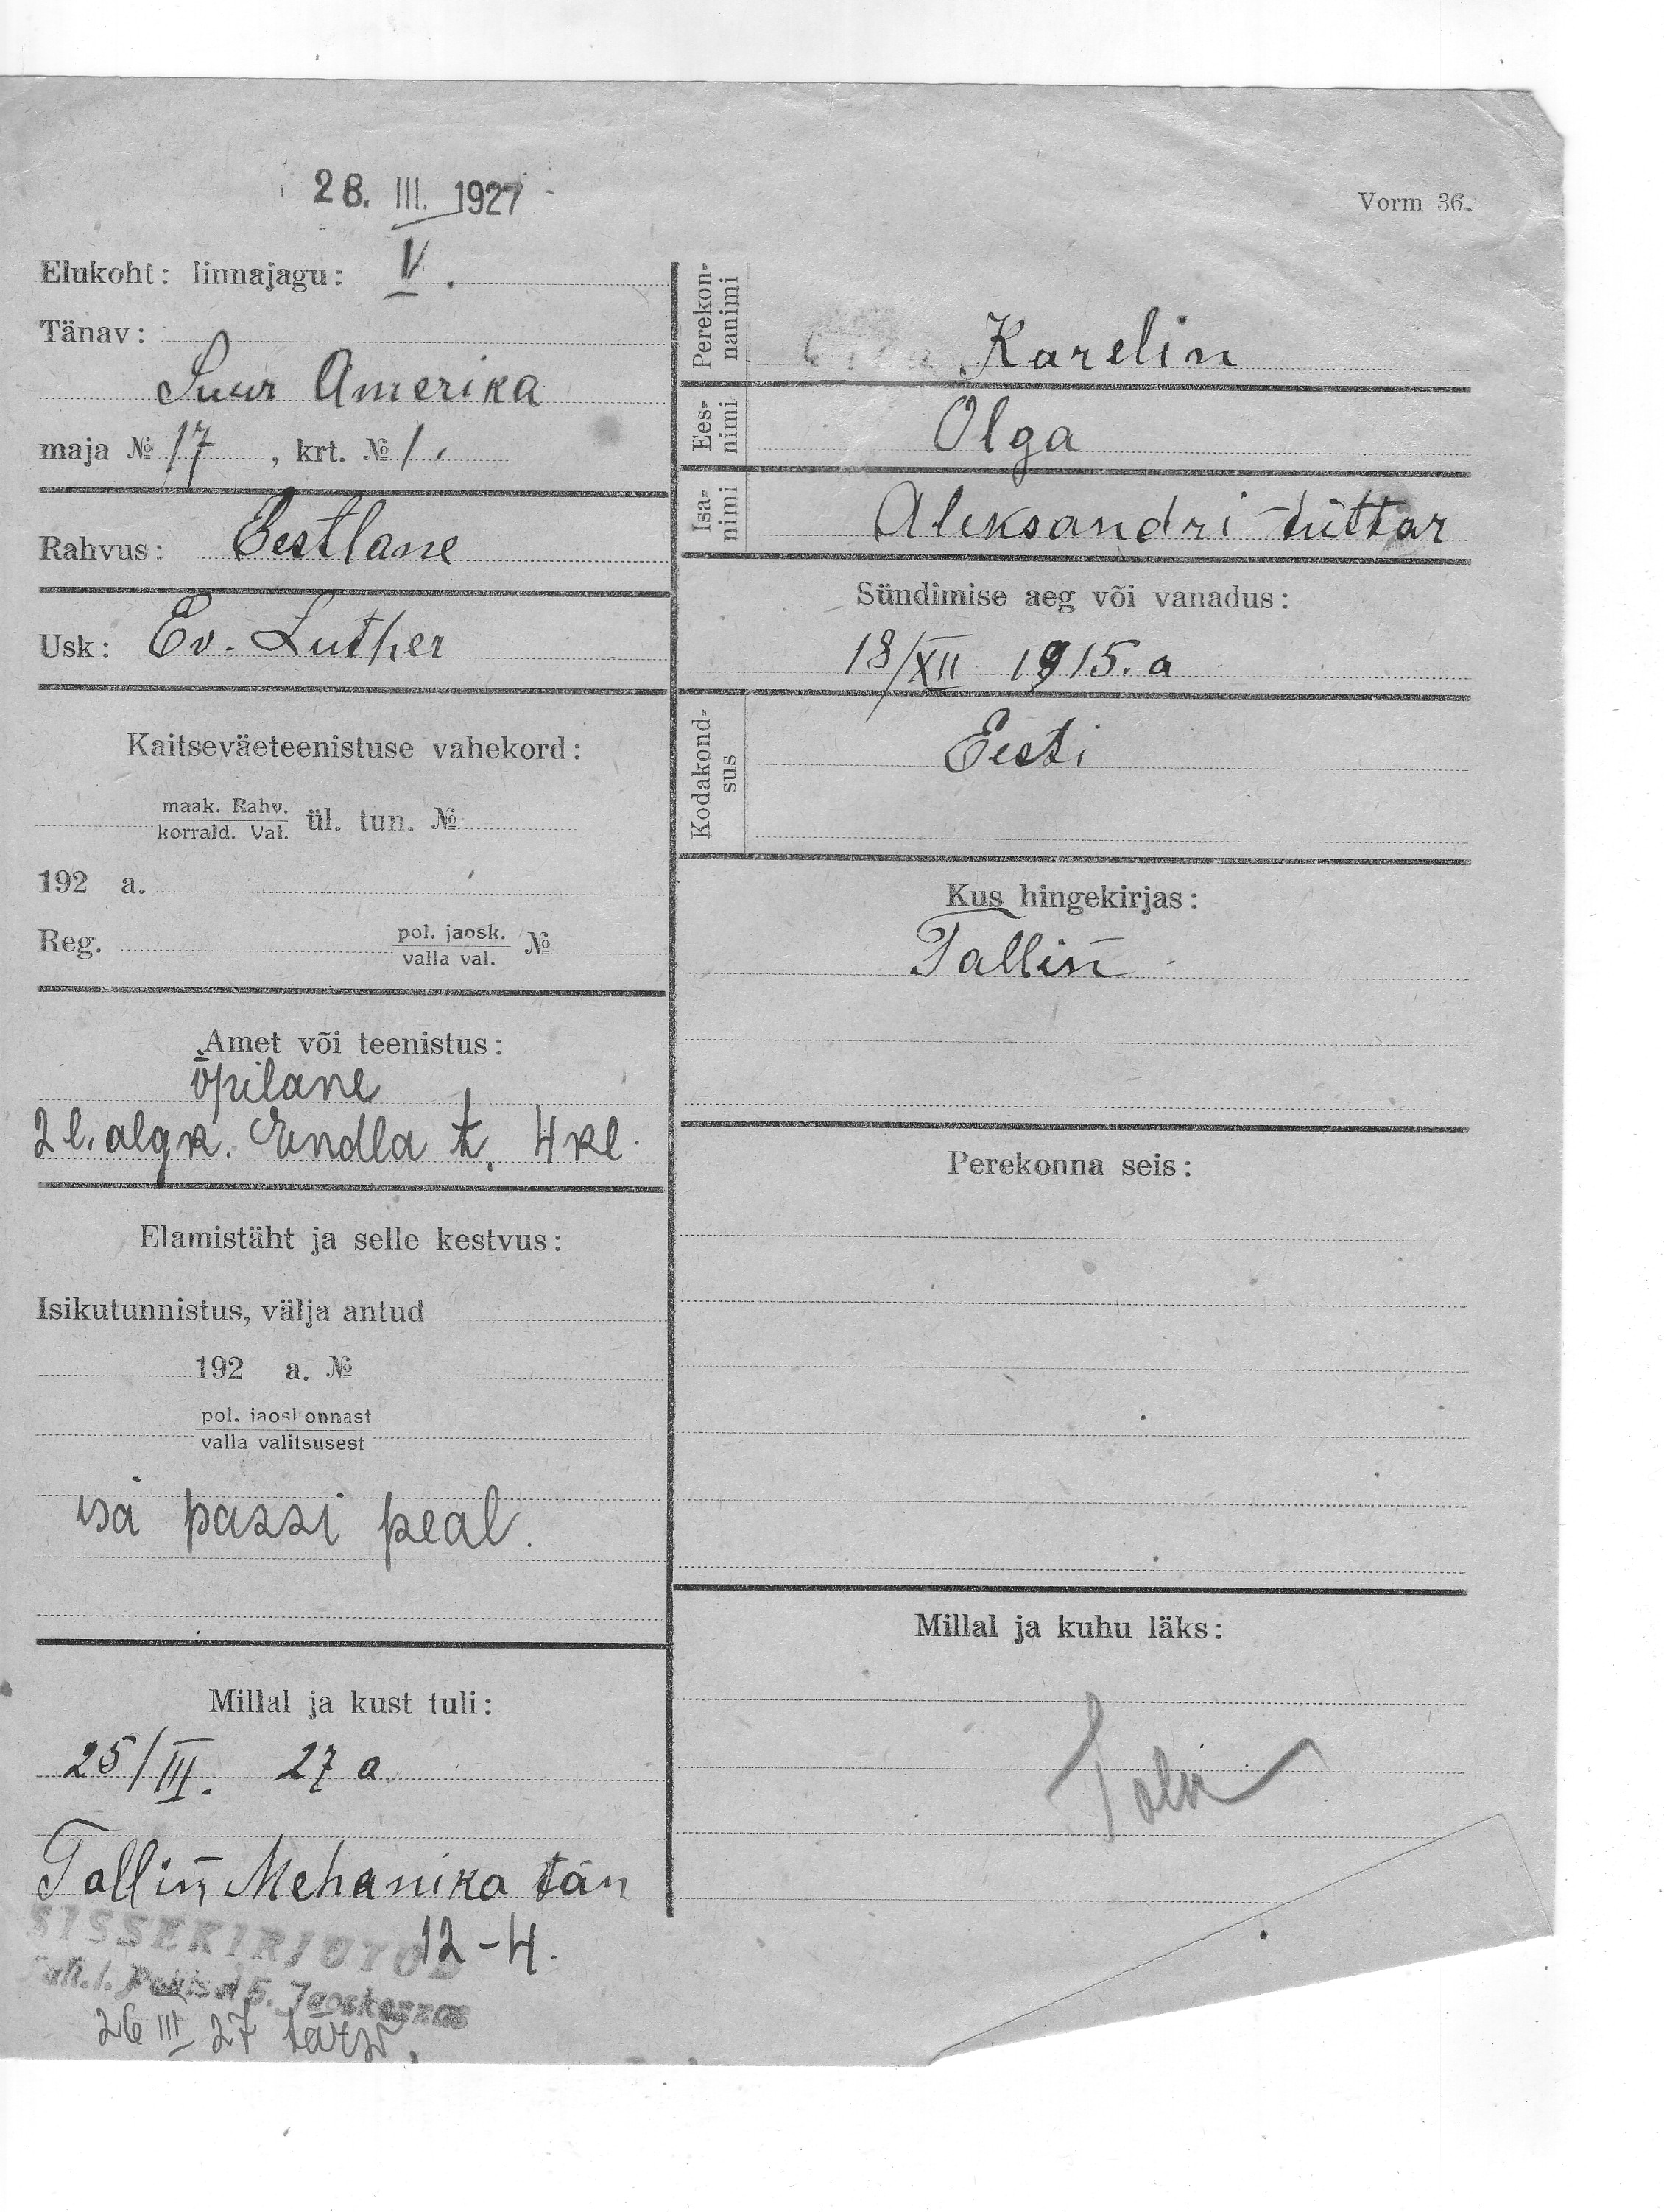 28. III. 1927
Vorm 36.
Elukoht: linnajagu: V.
Tänav:
Suur Amerika
maja № 17, krt. № 1.
Rahvus: Eestlane
Usk: Ev. Luther
Kaitseväeteenistuse vahekord:
maak. Rahv.
korrald. Val. ül. tun. №
192 a.
Reg. pol. jaosk.
valla val. №
Amet või teenistus:
õpilane
2 l. algk. Endla t. 4 kl.
Elamistäht ja selle kestvus:
Isikutunnistus, välja antud
192 a. №
pol. jaoskonnast
valla valitsusest
isa passi peal.
Millal ja kust tuli:
25/III. 27 a
Tallin̄, Mehanika tän
12-4.
SISSEKIRJUTUD
Politsei 5. Jaoskonnas
26 III 27
Perekonnanimi
Karelin
Eesnimi
Olga
Isanimi
Aleksandri tüttar
Sündimise aeg või vanadus:
18/XII 1915. a
Kodakondsus
Eesti
Kus hingekirjas:
Tallin̄
Perekonna seis:
Millal ja kuhu läks: